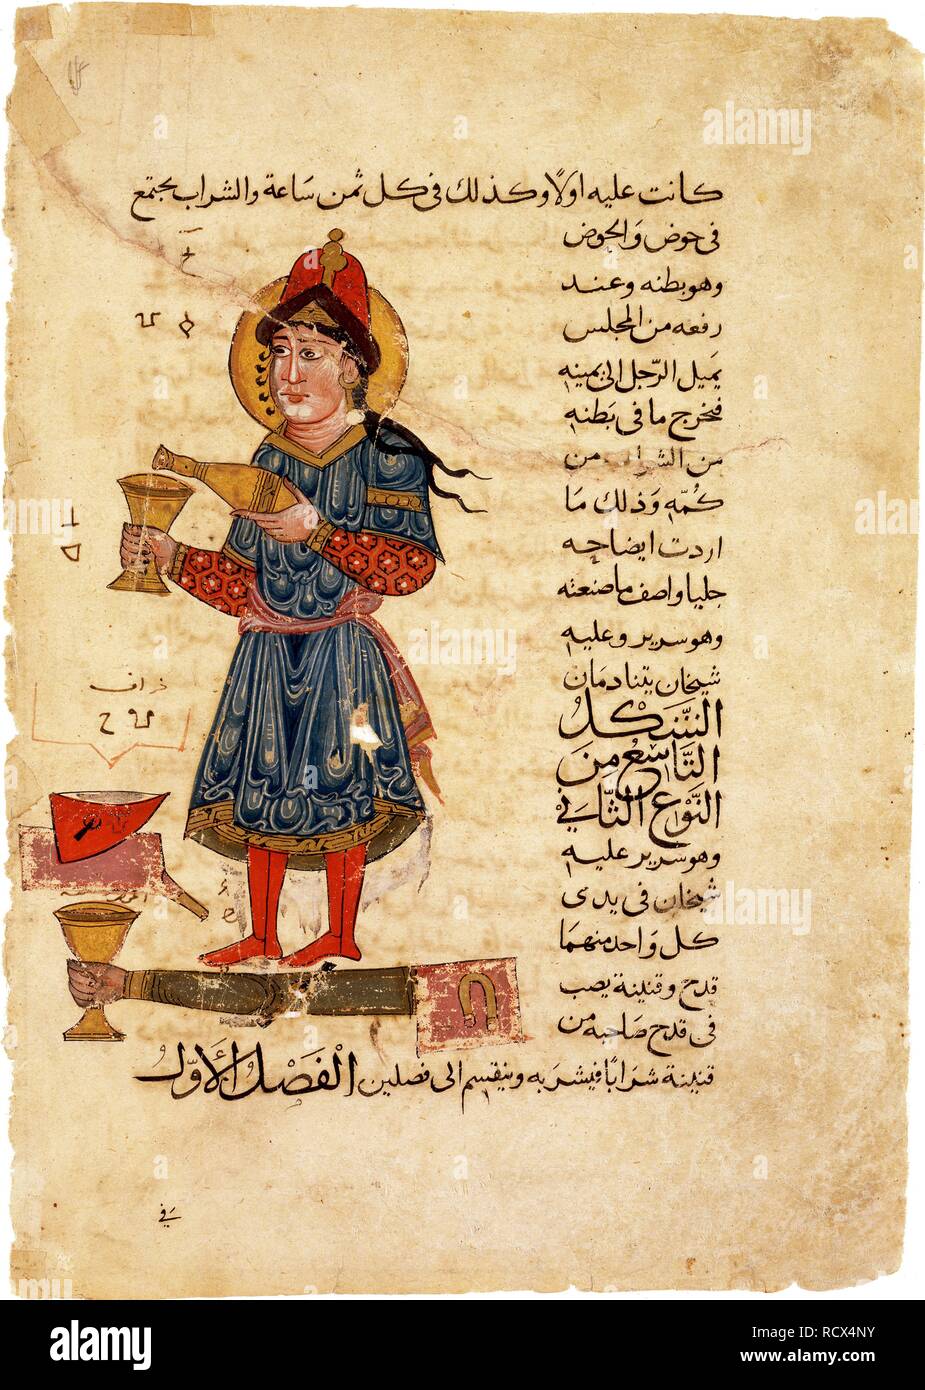 كانت عليه اولًا وكذلك فى كل ثمن سَاعة والشراب يجتمع
فى حوض وَالحوض
وهو بطنه وعند
رفعه من المجلس
يَميل الرّجل الى يمينه
فيخرج ما فى بَطنه
من الشراب من
كُمّه وَذلك مَا
اردت ايضاحه
جليا واصف ما صنعته
وهو سرير وعليه
شيخان يتنادمَان
الشَّكل
التَّاسِعُ مِنَ
النَّوْعِ الثَّانِي
وهو سرير عليه
شيخان فى يدى
كل وَاحد منهمَا
قدح وقنينة يصب
فى قدح صَاحبه من
قنينة شرابًا فيشربه وينقسم الى فصلين الْفَصْلُ الأَوَّلُ
فِي
a alamy
alamy
Image ID: RCX4NY
www.alamy.com